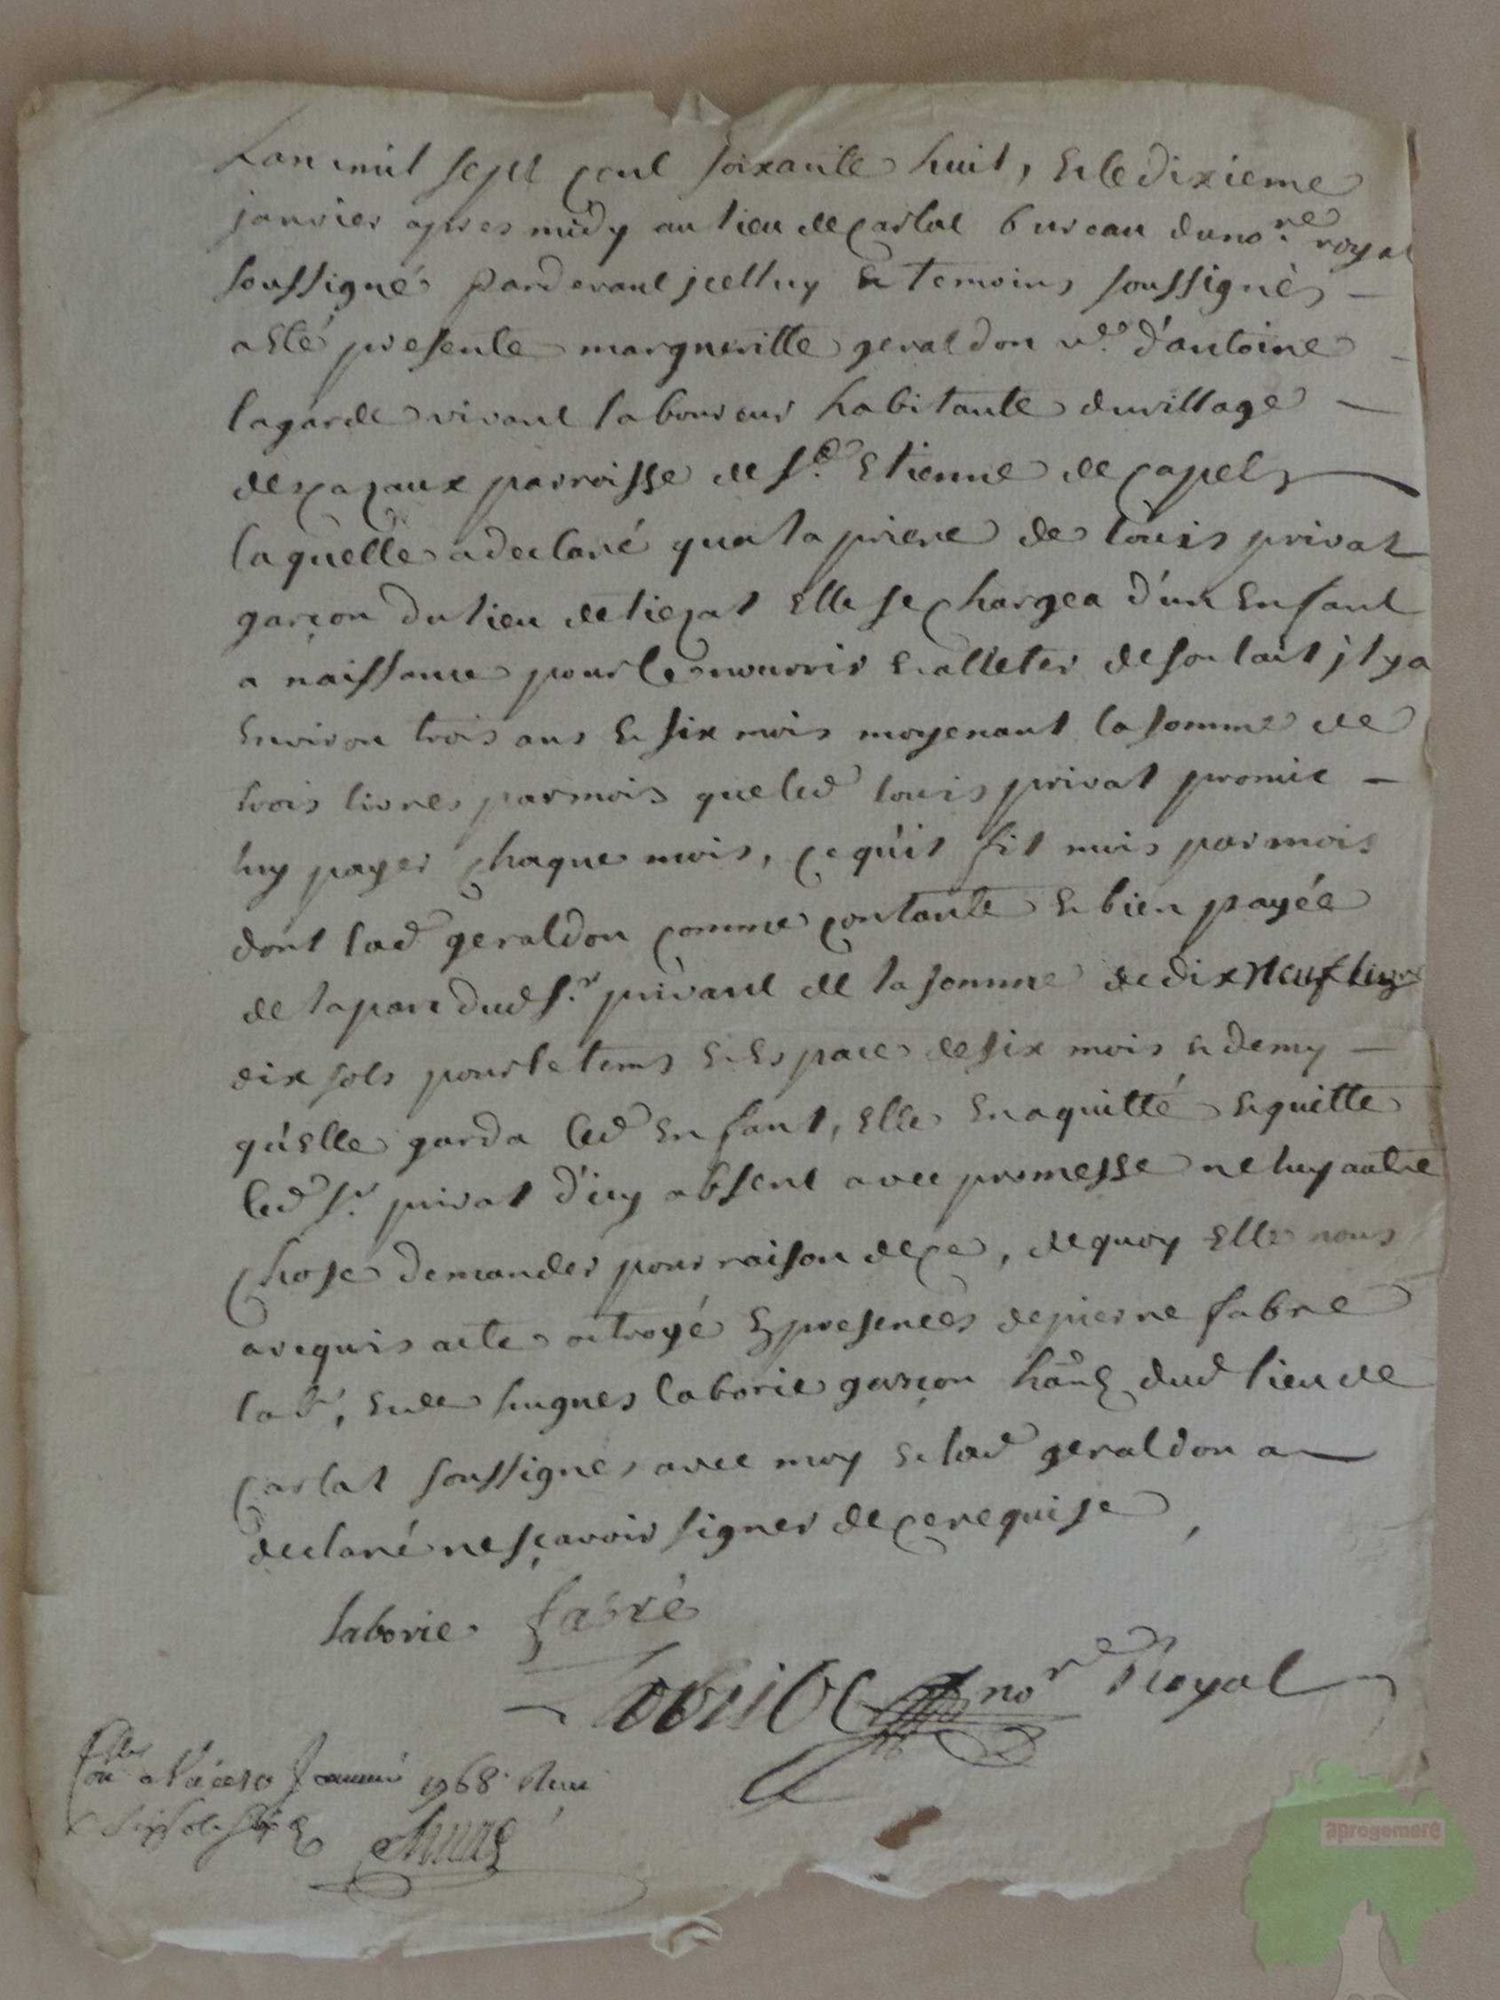 Lan mil sept cent soixante huit, & le dixieme
janvier apres midy au lieu de carlat bureau du no.re royal
soussigné pardevant jcelluy & temoins soussignés
a esté presente margueritte geraldon v.e d'antoine
lagarde vivant laboureur habitante du village
de cazaux parroisse de S.t Etienne de capels
laquelle a declaré qua la priere de louis privat
garçon du lieu de tiezat elle se chargea d'un enfant
a naissance pour le nourrir & alleter de son lait jl y a
environ trois ans & six mois moyenant la somme de
trois livres par mois que led louis privat promit
luy payer chaque mois, ce qu'il fit mois par mois
dont lad geraldon comme contante & bien payée
de la part dud S.r privat de la somme de dix neuf livres
dix sols pour le tems & espace de six mois & demy
qu'elle garda led enfant, elle en a quitté & quitte
led S.r privat d'icy absent avec promesse ne luy autre
chose demander pour raison de ce, de quoy elle nous
a requis acte octroyé en presences de pierre fabre
lab.r, & de hugues laborie garçon hãnt dud lieu de
carlat soussignes avec moy & lad geraldon a
declaré ne sçavoir signer de ce requise,
laborie fabre
no.re Royal
1768